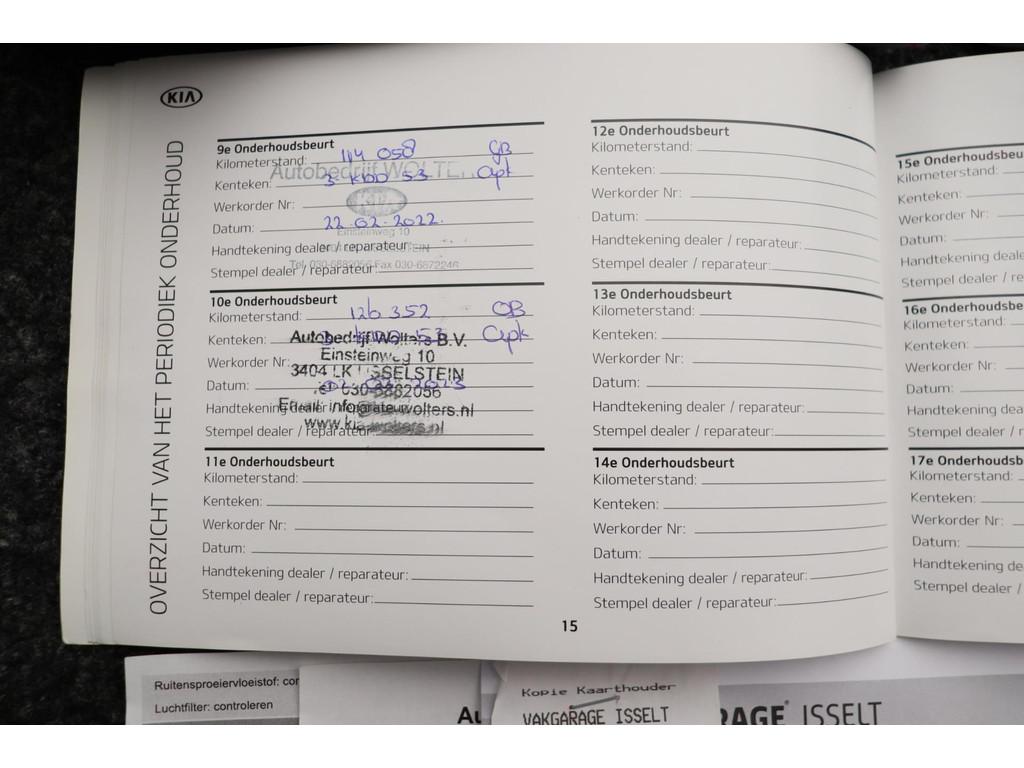 KIA
OVERZICHT VAN HET PERIODIEK ONDERHOUD
9e Onderhoudsbeurt
Kilometerstand: 114 058 GB
Kenteken: 3-KDD-53 Apk
Autobedrijf WOLTE
Werkorder Nr:
KIA
Datum: 22-02-2022.
Einsteinweg 10
Handtekening dealer / reparateur:
Tel. 030-6882056 Fax 030-6872246
Stempel dealer / reparateur:
10e Onderhoudsbeurt
Kilometerstand: 126 352 OB
Kenteken: 53 Apk
Autobedrijf Wolters B.V.
Einsteinweg 10
Werkorder Nr:
3404 LK IJSSELSTEIN
Datum: 2023
030-6882056
Handtekening dealer / reparateur
Email: info@ wolters.nl
Stempel dealer / reparateur:
www.kia-wolters.nl
11e Onderhoudsbeurt
Kilometerstand:
Kenteken:
Werkorder Nr:
Datum:
Handtekening dealer / reparateur:
Stempel dealer / reparateur:
12e Onderhoudsbeurt
Kilometerstand:
Kenteken:
Werkorder Nr:
Datum:
Handtekening dealer / reparateur:
Stempel dealer / reparateur:
13e Onderhoudsbeurt
Kilometerstand:
Kenteken:
Werkorder Nr:
Datum:
Handtekening dealer / reparateur:
Stempel dealer / reparateur:
14e Onderhoudsbeurt
Kilometerstand:
Kenteken:
Werkorder Nr:
Datum:
Handtekening dealer / reparateur:
Stempel dealer / reparateur:
15
15e Onderhoudsbeu
Kilometerstand:
Kenteken:
Werkorder Nr:
Datum:
Handtekening deale
Stempel dealer / re
16e Onderhoudsbe
Kilometerstand:
Kenteken:
Werkorder Nr:
Datum:
Handtekening dea
Stempel dealer / r
17e Onderhoudsb
Kilometerstand:
Kenteken:
Werkorder Nr:
Datum:
Handtekening de
Stempel dealer /
Ruitensproeiervloeistof: cor
Luchtfilter: controleren
Au
Kopie Kaarthouder
VAKGARAGE ISSELT
RAGE ISSELT